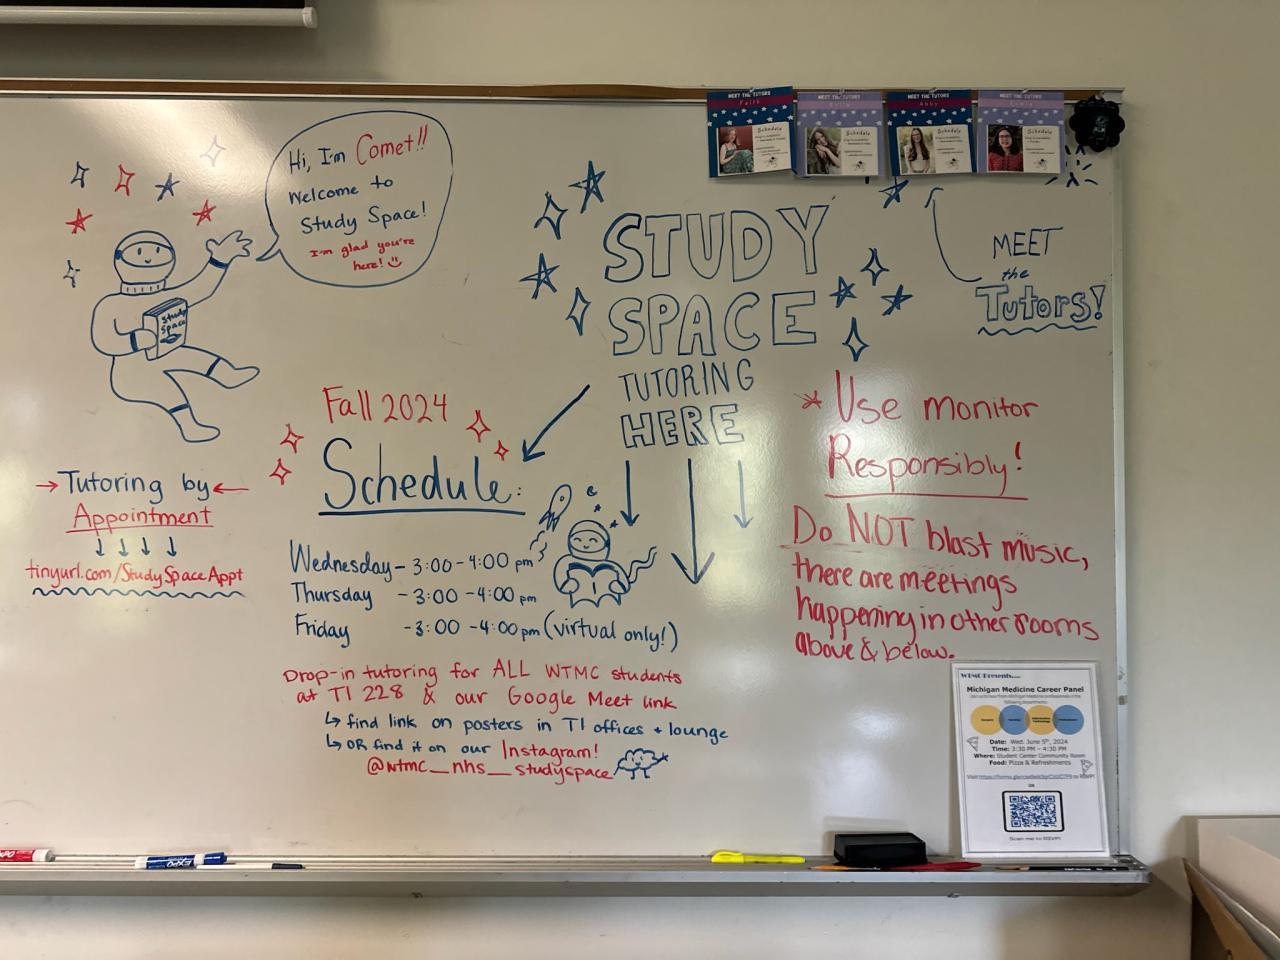 Hi, I'm Comet!!
Welcome to
Study Space!
I'm glad you're
here!
Study
Space
MEET THE TUTORS
Faith
Schedule
MEET THE TUTORS
Schedule
MEET THE TUTORS
Abby
Schedule
MEET THE TUTORS
Schedule
STUDY
SPACE
TUTORING
HERE
MEET
the
Tutors!
Fall 2024
Schedule:
Wednesday - 3:00 - 4:00 pm
Thursday - 3:00 - 4:00 pm
Friday - 3:00 - 4:00 pm (virtual only!)
Drop-in tutoring for ALL WTMC students
at TI 228 & our Google Meet link
↳ find link on posters in TI offices + lounge
↳ OR find it on our Instagram!
@wtmc_nhs_studyspace
→ Tutoring by ←
Appointment
↓ ↓ ↓ ↓
tinyurl.com/StudySpaceAppt
* Use monitor
Responsibly!
Do NOT blast music,
there are meetings
happening in other rooms
above & below.
WTMC Presents....
Michigan Medicine Career Panel
Date: Wed. June 5th, 2024
Time: 3:30 PM - 4:30 PM
Where: Student Center Community Room
Food: Pizza & Refreshments
OR
Scan me to RSVP!
EXPO